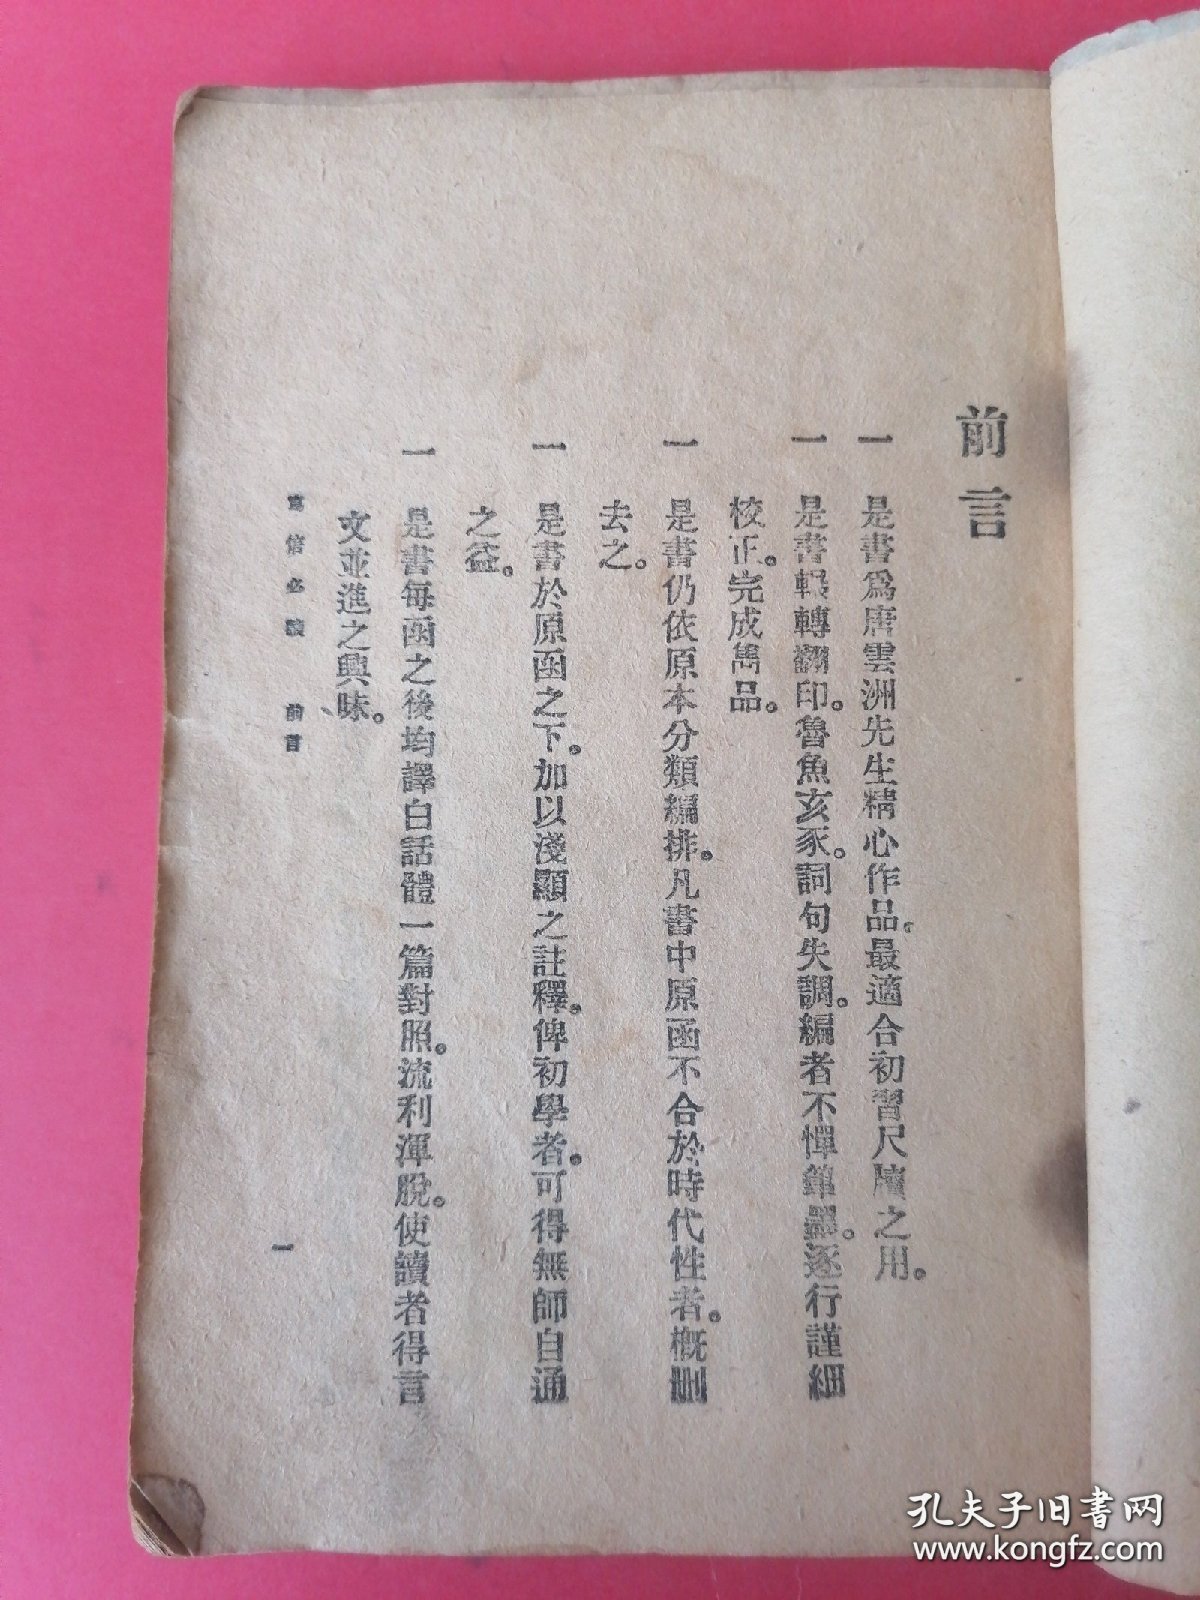 前言
一 是書爲唐雲洲先生精心作品。最適合初習尺牘之用。
一 是書輾轉翻印。魯魚亥豕。詞句失調。編者不憚
逐行謹細
校正。完成雋品。
一 是書仍依原本分類編排。凡書中原函不合於時代性者。概刪
去之。
一 是書於原函之下。加以淺顯之註釋。俾初學者。可得無師自通
之益。
一 是書每函之後均譯白話體一篇對照。流利渾脫。使讀者得言
文並進之興味。
寫信必讀 前言
一
孔夫子旧书网
www.kongfz.com